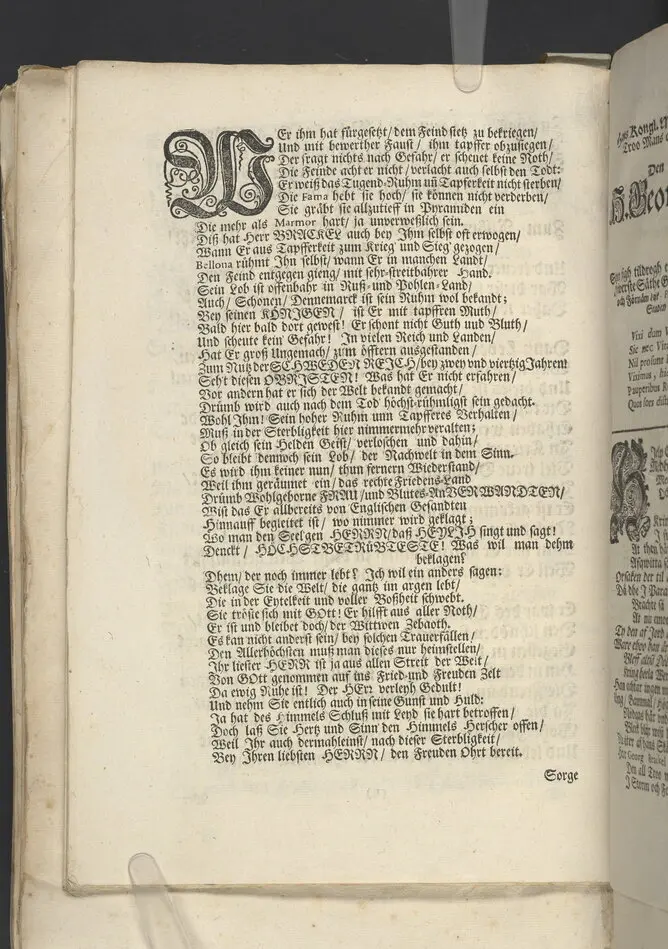 WEr ihm hat fürgesetzt/ dem Feind stetz zu bekriegen/
Und mit bewerther Faust/ ihm tapffer obzusiegen/
Der fragt nichts nach Gefahr/ er scheuet keine Noth/
Die Feinde acht er nicht/ verlacht auch selbst den Todt:
Er weiß das Tugend-Ruhm uñ Tapferkeit nicht sterben/
Die Fama hebt sie hoch/ sie können nicht verderben/
Sie gräbt sie allzutieff in Pyramiden ein
Die mehr als Marmor hart/ ja unverweßlich sein.
Diß hat Herr BRACKEL auch bey Ihm selbst oft erwogen/
Wann Er aus Tapfferkeit zum Krieg und Sieg gezogen/
Bellona rühmt Ihn selbst/ wann Er in manchen Landt/
Den Feind entgegen gieng/ mit sehr-streitbahrer Hand.
Sein Lob ist offenbahr in Ruß- und Pohlen-Land/
Auch/ Schonen/ Dennemarck ist sein Ruhm wol bekandt;
Bey seinen KÖNIGEN/ ist Er mit tapffren Muth/
Bald hier bald dort gewest! Er schont nicht Guth und Bluth/
Und scheute kein Gefahr! In vielen Reich und Landen/
Hat Er groß Ungemach/ zum öfftern ausgestanden/
Zum Nutz der SCHWEDEN REICH/ bey zwey und viertzig Jahren!
Seht diesen OBRISTEN! Was hat Er nicht erfahren/
Vor andern hat er sich der Welt bekandt gemacht/
Drümb wird auch nach dem Tod höchst-rühmligst sein gedacht.
Wohl Ihm! Sein hoher Ruhm unn Tapfferes Verhalten/
Muß in der Sterbligkeit hier nimmermehr veralten;
Ob gleich sein Helden Geist/ verloschen und dahin/
So bleibt dennoch sein Lob/ der Nachwelt in dem Sinn.
Es wird ihm keiner nun/ thun fernern Wiederstand/
Weil ihm geräumet ein/ das rechte Friedens-Land
Drümb Wohlgeborne FRAU/ und Blutes-AnVERWANDTEN/
Wist das Er allbereits von Englischen Gesandten
Hinnauff begleitet ist/ wo nimmer wird geklagt;
Wo man den Seelgen HERRN/ daß HEYLJH singt und sagt!
Denckt/ HÖCHSTBETRüBTESTE! Was wil man dehm
beklagen?
Dhem/ der noch immer lebt? Ich wil ein anders sagen:
Beklage Sie die Welt/ die gantz im argen lebt/
Die in der Eytelkeit und voller Boßheit schwebt.
Sie tröste sich mit GOtt! Er hilfft aus aller Noth/
Er ist und bleibet doch/ der Wittwen Zebaoth.
Es kan nicht anderst sein/ bey solchen Trauerfällen/
Den Allerhöchsten muß man dieses nur heimstellen/
Ihr liester HERR ist ja aus allen Streit der Welt/
Von GOtt genommen auf ins Fried- und Freuden Zelt
Da ewig Ruhe ist! Der HErr verleyh Gedult!
Und nehm Sie entlich auch in seine Gunst und Huld:
Ja hat des Himmels Schluß mit Leyd sie hart betroffen/
Doch laß Sie Hertz und Sinn den Himmels Herscher offen/
Weil Ihr auch dermahleinst/ nach dieser Sterbligkeit/
Bey Ihren liebsten HERRN/ den Freuden Ohrt bereit.
Sorge
Kongl.
Troo Mans
Den
H. Geor
Vixi dum
Sic nec
Nil prosunt
Viximus,
Pauperibus
Quos fors